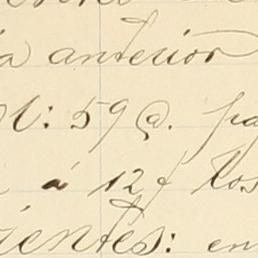 a anterior
: 59 @. pa
á 12 f los
ientes: en